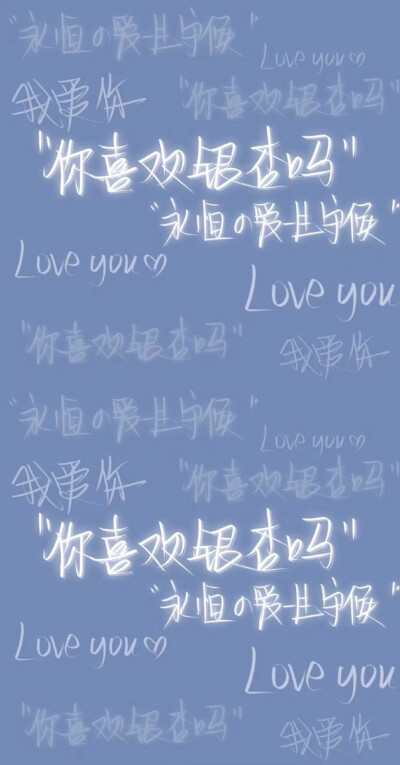 "永恒の爱一生守候"
Love you♡
我爱你
"你喜欢银杏吗"
"你喜欢银杏吗"
"永恒の爱一生守候"
Love you♡
Love you
"你喜欢银杏吗"
我爱你
"永恒の爱一生守候"
Love you♡
我爱你
"你喜欢银杏吗"
"你喜欢银杏吗"
"永恒の爱一生守候"
Love you♡
Love you
"你喜欢银杏吗"
我爱你